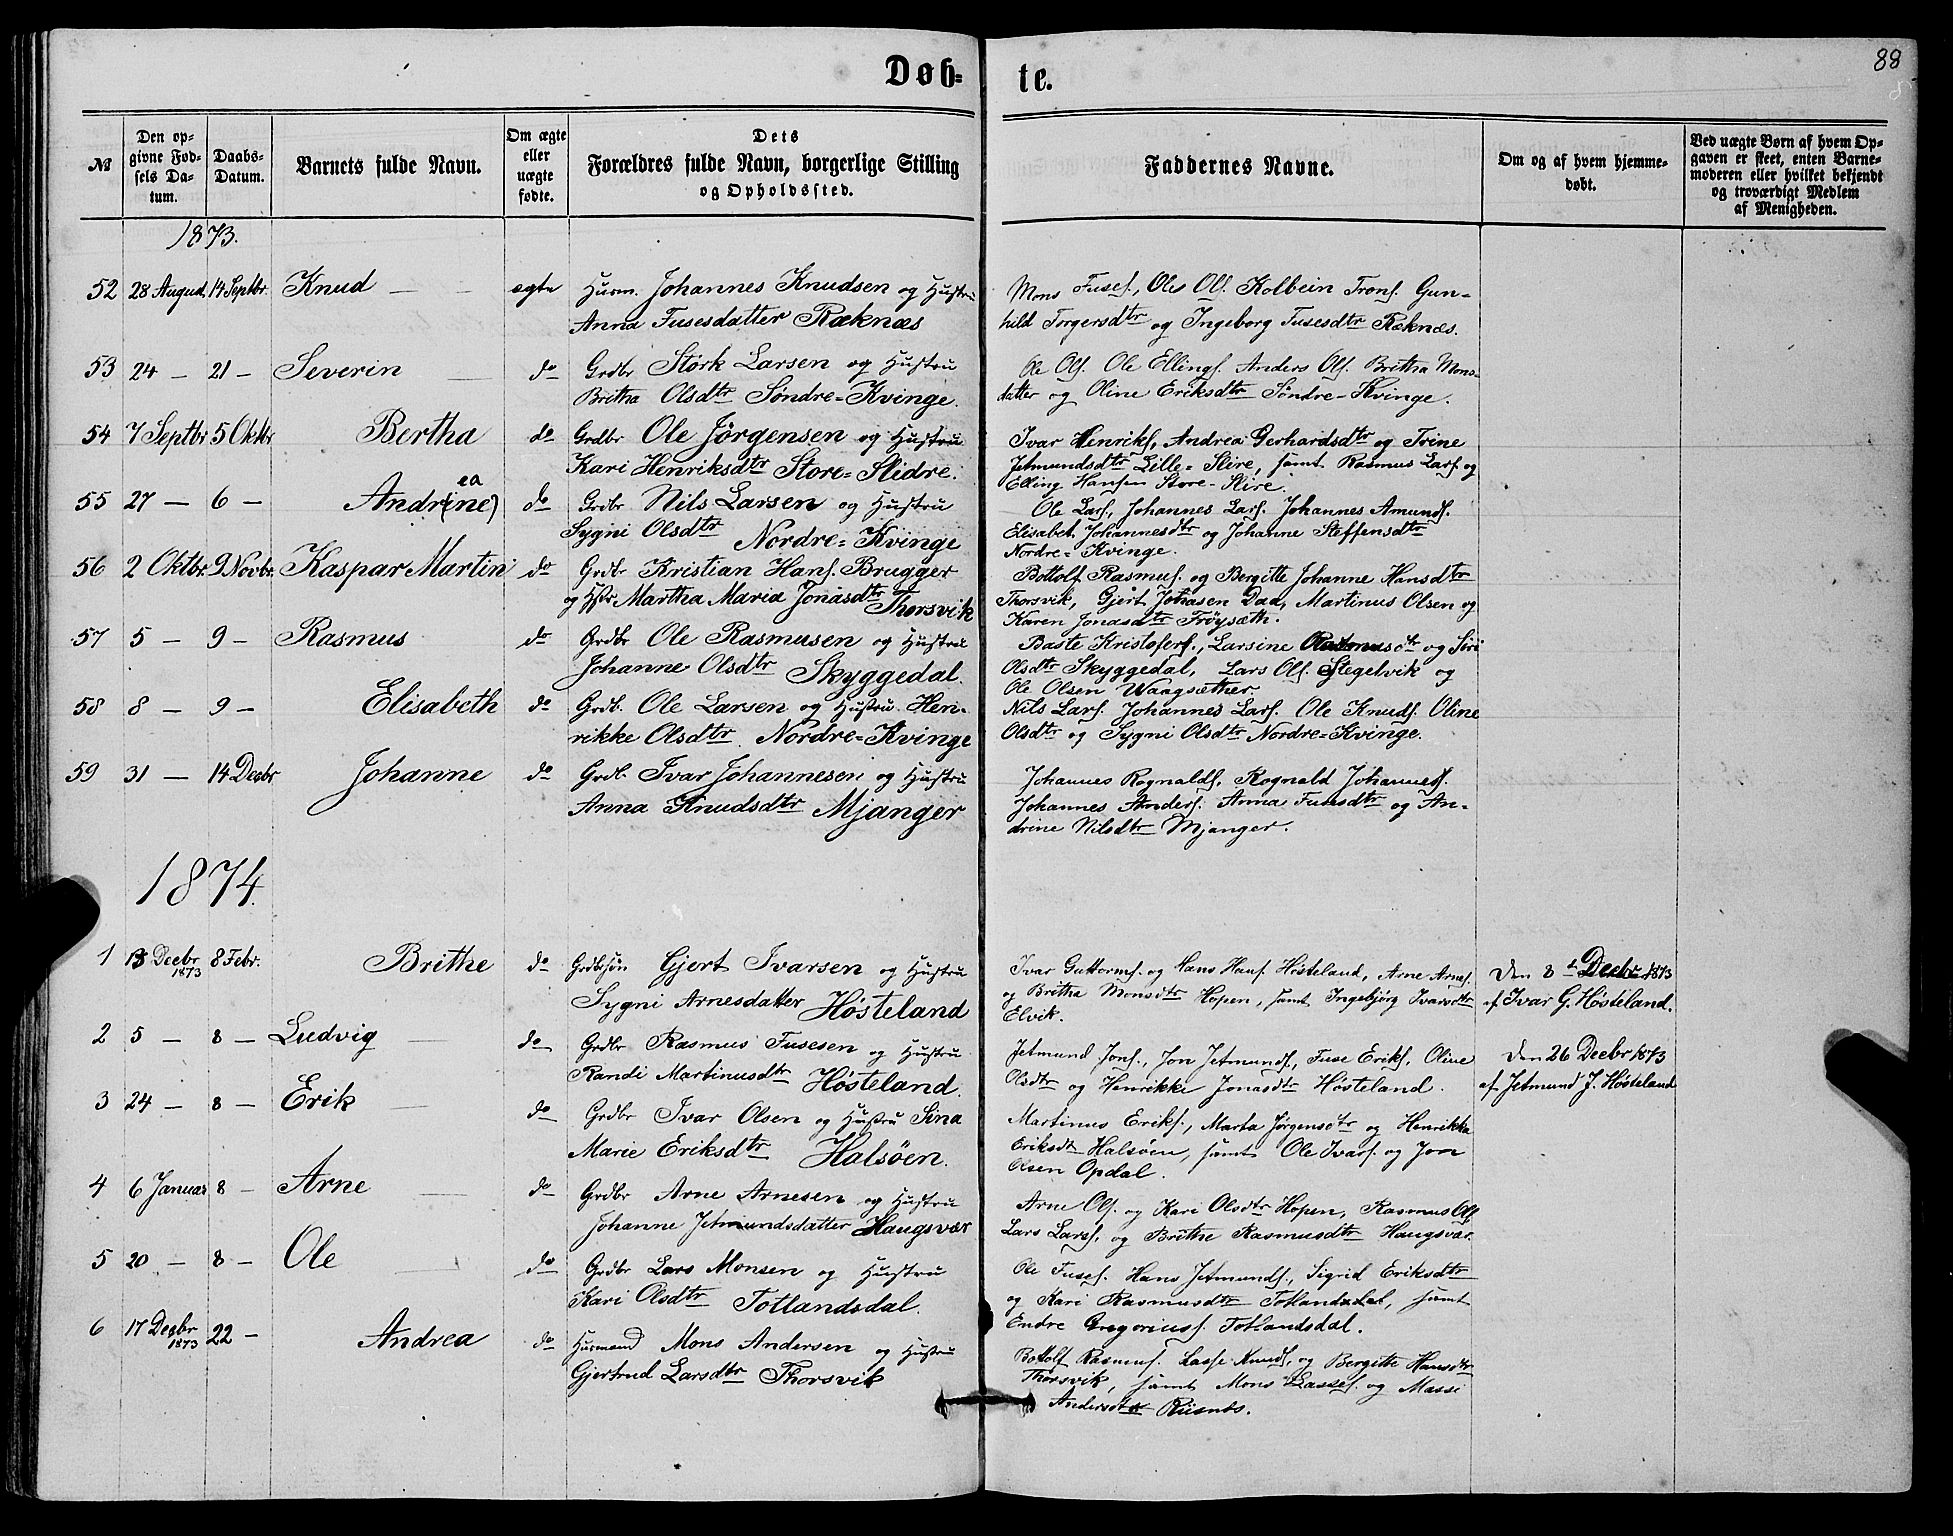 88
Døb-
te.
№
Den op-
givne Fød-
sels Da-
tum.
Daabs-
Datum.
Barnets fulde Navn.
Om ægte
eller
uægte
fødte.
Dets
Forældres fulde Navn, borgerlige Stilling
og Opholdssted.
Faddernes Navne.
Om og af hvem hjemme-
døbt.
Ved uægte Børn af hvem Op-
gaven er skeet, enten Barne-
moderen eller hvilket bekjendt
og troværdigt Medlem
af Menigheden.
1873.
52 28 August 14 Septbr. Knud ægte Husm. Johannes Knudsen og Hustru
Anna Fusesdatter Ræknæs
Mons Fuses., Oles Ols. Kolbein Trons. Gun-
hild Torgersdtr og Ingeborg Fusesdtr Ræknæs.
53 24 — 21 — Severin do Grdbr Størk Larsen og Hustru
Britha Olsdtr Søndre-Kvinge.
Ole Ols. Ole Ellings. Anders Ols. Britha Mons-
datter og Oline Eriksdtr Søndre-Kvinge.
54 7 Septbr 5 Oktbr Bertha do Grdbr Ole Jørgensen og Hustru
Kari Henriksdtr Store-Slidre.
Ivar Henriks, Andrea Gerhardsdtr og Trine
Jetmundsdtr Lille-Slire, samt Rasmus Lars og
Elling Hansen Store-Slire.
55 27 — 6 — Andr(ine) ea do Grdbr Nils Larsen og Hustru
Sygni Olsdtr Nordre-Kvinge
Ole Lars, Johannes Lars. Johannes Amunds.
Elisabet Johannesdtr og Johanne Steffensdtr
Nordre-Kvinge.
56 2 Oktbr. 9 Novbr. Kaspar Martin do Grdbr Kristian Hans. Brugger
og Hstr. Martha Maria Jonasdtr Thorsvik
Bottolf Rasmus. og Bergitte Johanne Hansdtr
Thorsvik, Gjert Johnsen Daa, Martinus Olsen og
Karen Jonasdtr Frøysæth.
57 5 — 9 — Rasmus do Grdbr Ole Rasmusen og Hustru
Johanne Olsdtr Skyggedal.
Baste Kristofers., Larsine Rasmusdtr og Siri
Olsdtr Skyggedal, Lars Ols. Stegelvik og
Ole Olsen Waagsæther
58 8 — 9 — Elisabeth do Grdb. Ole Larsen og Hustru Hen-
rikke Olsdtr. Nordre-Kvinge
Nils Lars. Johannes Lars. Ole Knuds. Oline
Olsdtr og Sygni Olsdtr Nordre-Kvinge.
59 31 — 14 Decbr Johanne do Grdb. Ivar Johannesen og Hustru
Anna Knudsdtr Mjanger
Johannes Rognalds, Rognald Johannes.
Johannes Anders. Anna Fusesdtr og An-
drine Nilsdtr Mjanger.
1874.
1 13 Decbr 1873 8 Febr. Brithe do Grdbrsøn Gjert Ivarsen og Hustru
Sygni Arnesdatter Høsteland
Ivar Guttorms. og Hans Hans. Høsteland, Arne Arnes.
og Britha Monsdtr Hopen, samt Ingebjørg Ivarsdtr
Elvik.
Den Decbr 1873
af Ivar G. Høsteland.
2 5 — 8 — Ludvig do Grdbr Rasmus Fusesen og Hustru
Randi Martinusdtr Høsteland.
Jetmund Jons., Jon Jetmunds., Fuse Eriks, Oline
Olsdtr og Henrikke Jonasdtr Høsteland.
Den 26 Decbr 1873
af Jetmund J. Høsteland
3 24 — 8 — Erik do Grdbr Ivar Olsen og Hustru Sina
Marie Eriksdtr Halsøen.
Martinus Eriks., Marta Jørgensdtr og Henrikka
Eriksdtr Halsøen, samt Ole Ivars. og Jon
Olsen Opdal.
4 6 Januar 8 — Arne do Grdbr Arne Arnesen og Hustru
Johanne Jetmundsdatter Haugsvær
Arne Ols. og Kari Olsdtr Hopen, Rasmus Ols.
Lars Lars. og Brithe Rasmusdtr Haugsvær.
5 20 — 8 — Ole do Grdbr Lars Monsen og Hustru
Kari Olsdtr Totlandsdal.
Ole Fuses. Hans Jetmunds., Sigrid Eriksdtr
og Kari Rasmusdtr Totlandsdal, samt
Endre Gregoriuss. Totlandsdal.
6 17 Decbr 1873 22 — Andrea do Husmand Mons Andersen og Hustru
Gjertrud Larsdtr Thorsvik
Bottolf Rasmus. Lasse Knuds, og Bergitte Hansdtr
Thorsvik, samt Mons Lasses. og Massi
Andersdtr Riisnes.